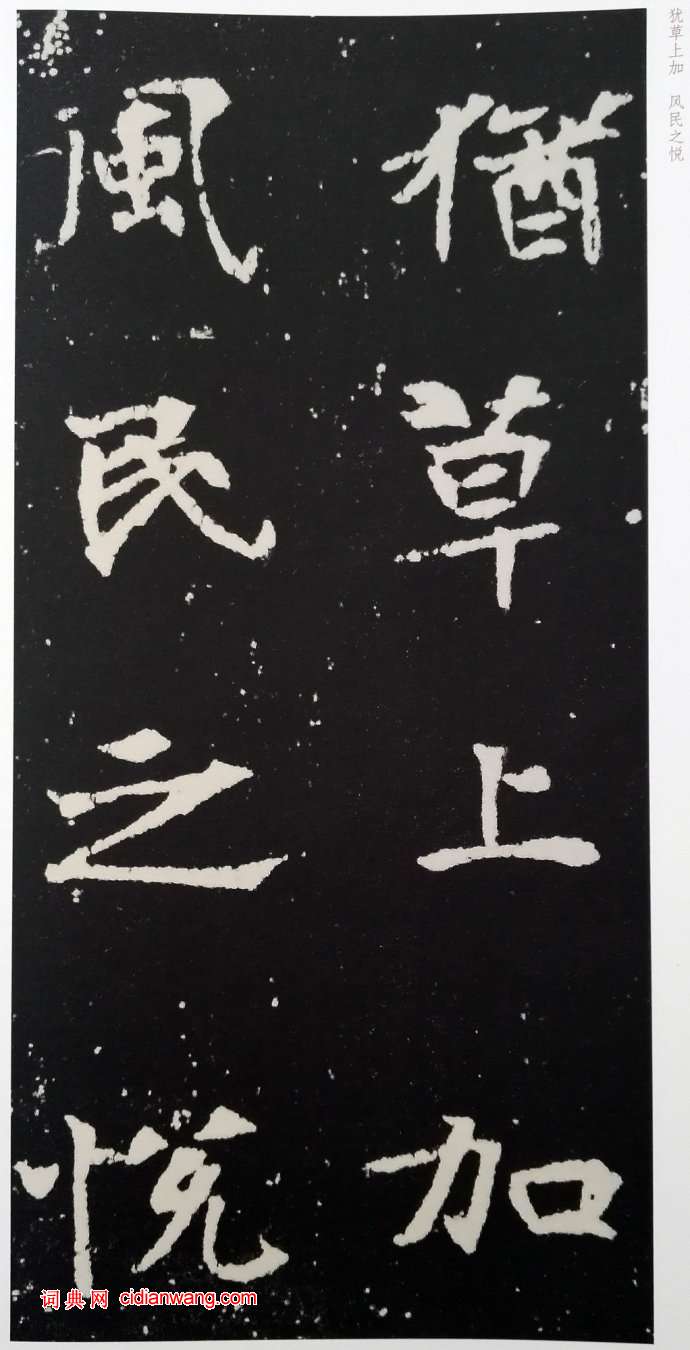 犹草上加 风民之悦
猶草上加
風民之悦
词典网 cidianwang.com